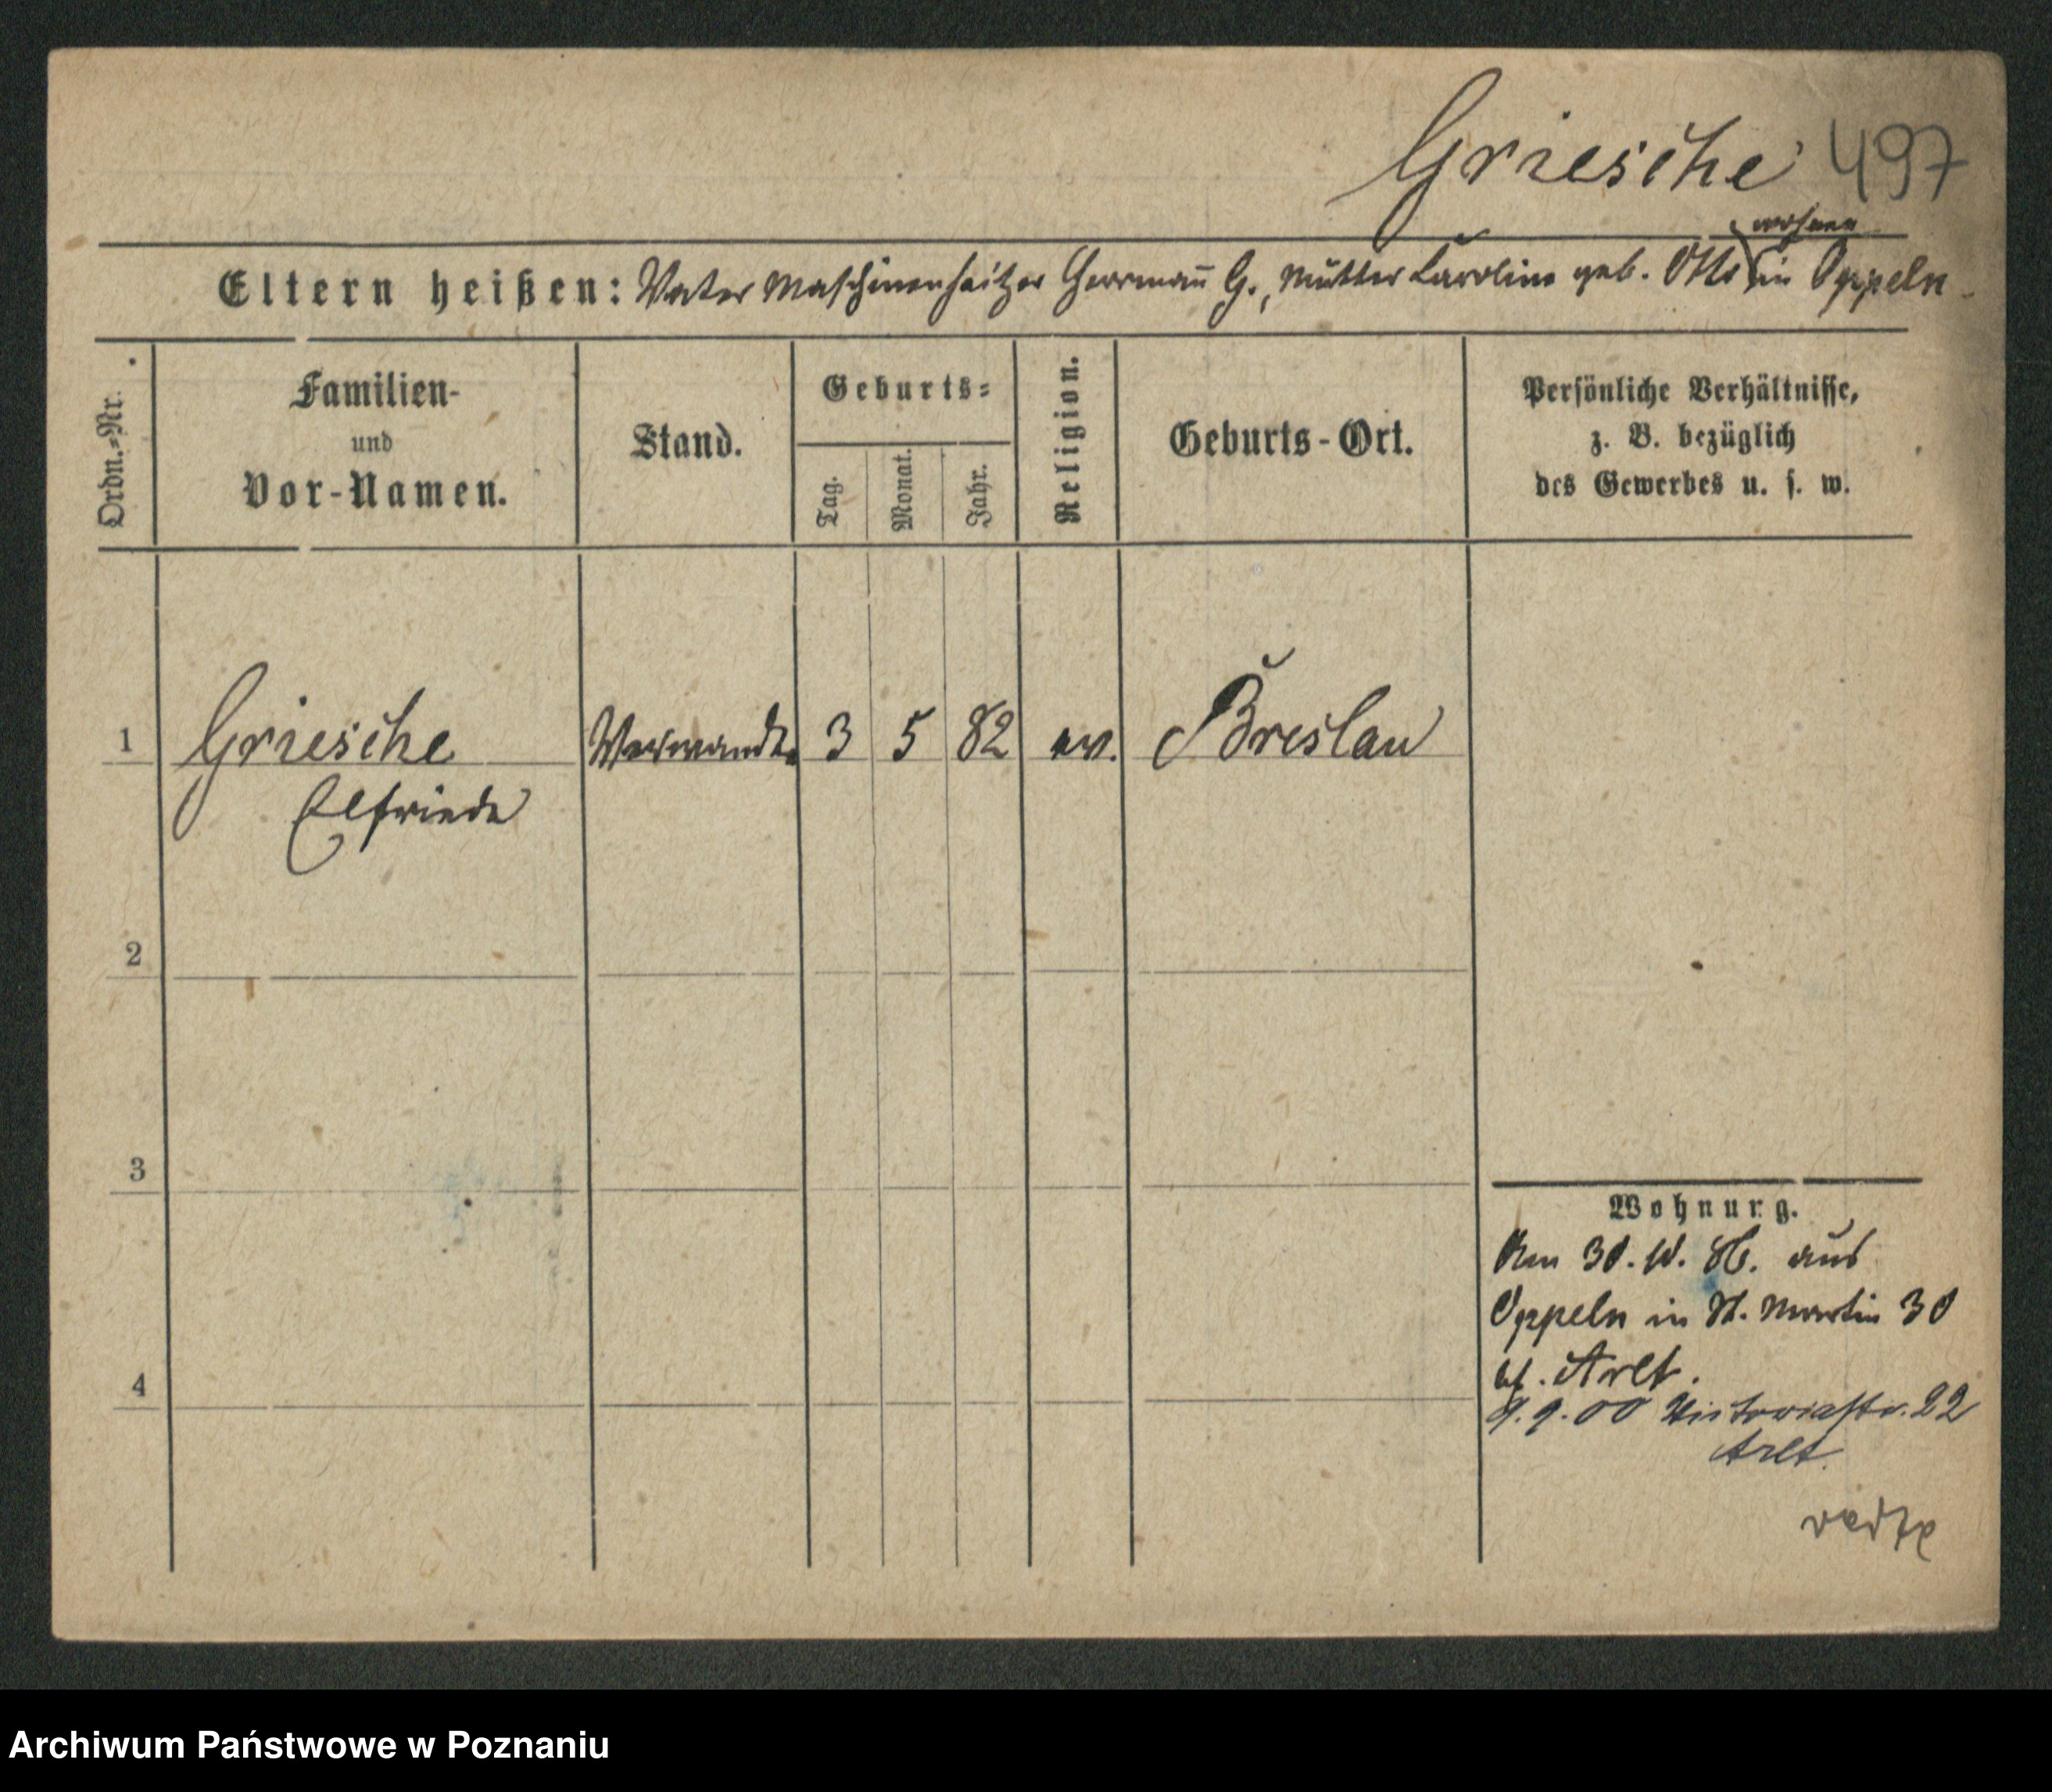 Griesche 497
wohnen
Eltern heißen: Vater Maschinenheitzer Herrmann G., Mutter Karoline geb. Otto in Oppeln
Ordn.=Nr.
Familien-
und
Vor-Namen.
Stand.
Geburts=
Tag.
Monat.
Jahr.
Religion.
Geburts-Ort.
Persönliche Verhältnisse,
z. B. bezüglich
des Gewerbes u. s. w.
1 Griesche Verwandte 3 5 82 ev. Breslau
Elfriede
2
3
4
Wohnung.
Am 30. 10. 86. aus
Oppeln in St. Martin 30
bei Arlt.
9. 00 Victoriastr. 22
Arlt.
Archiwum Państwowe w Poznaniu